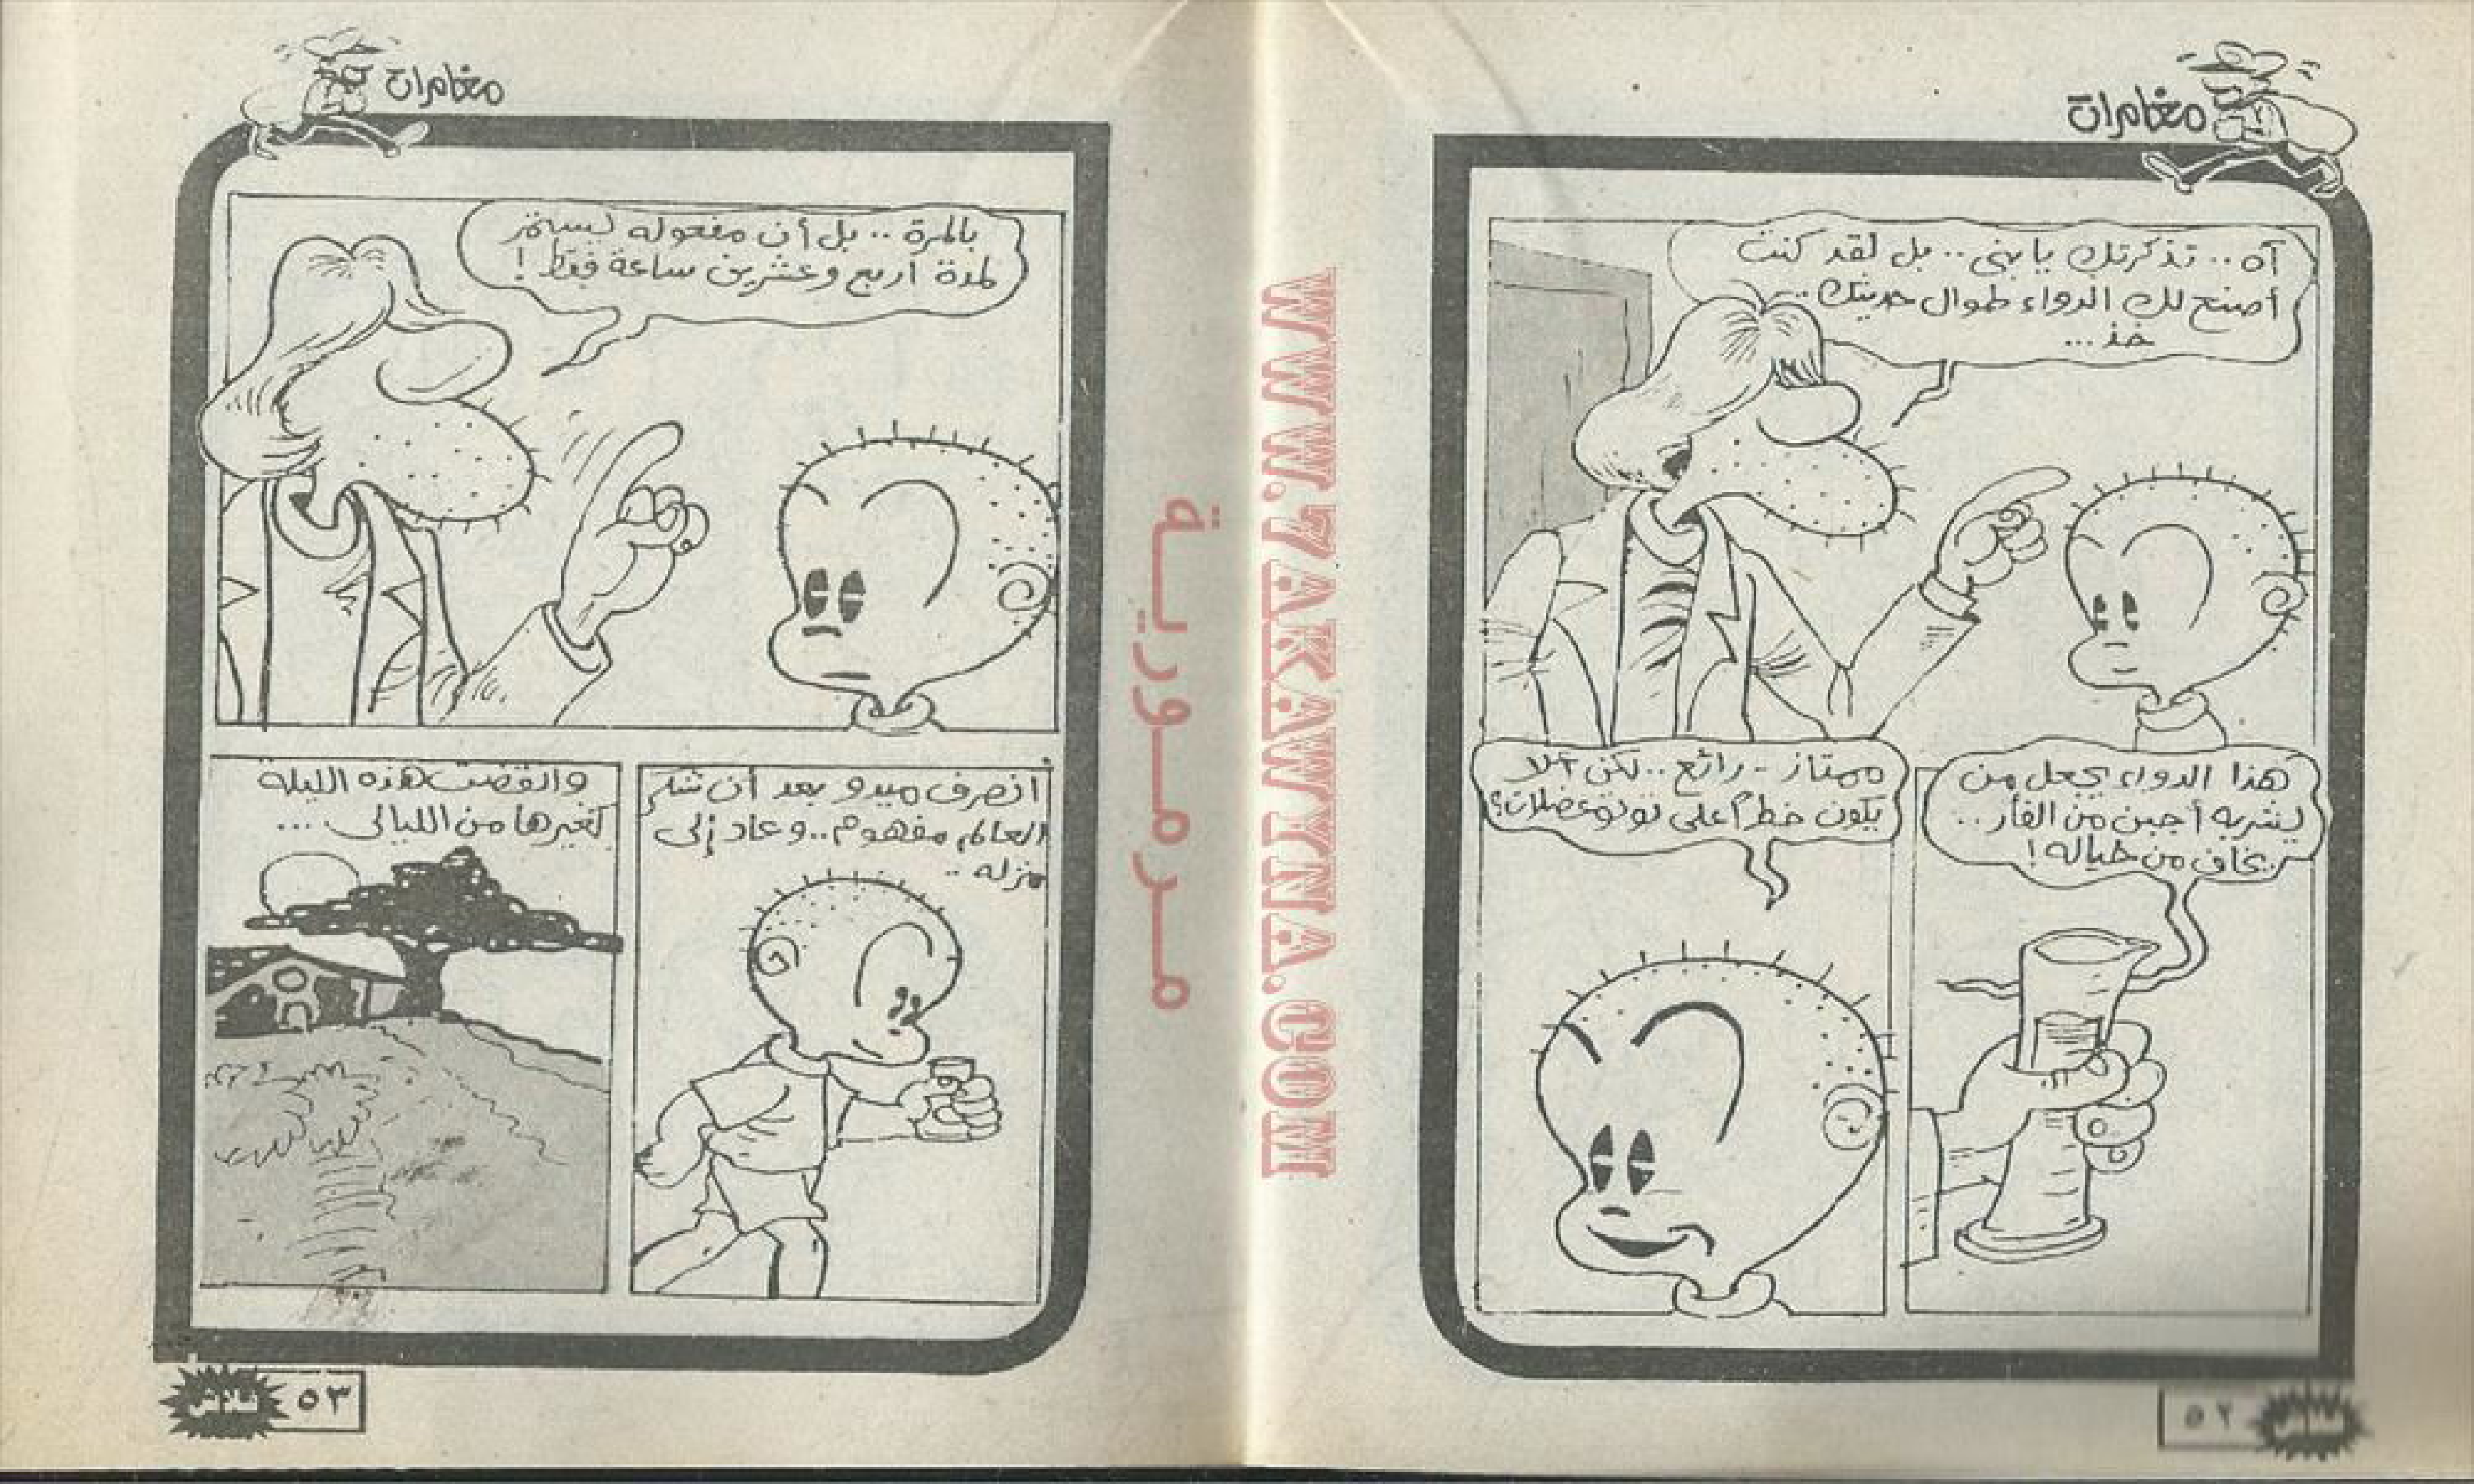 مغامرات
آه .. تذكرتك يا بنى .. بل لقد كنت
أصنع لك الدواء طوال حديثك ..
خذ ...
هذا الدواء يجعل من
يشربه أجبن من الفأر ..
يخاف من خياله !
ممتاز - رائع .. لكن ألا
يكون خطراً على توتو عضلات؟
٥٢
WWW.7AKAWINA.COM
مرمورية
مغامرات
بالمرة .. بل أن مفعوله يستمر
لمدة أربع وعشرين ساعة فقط !
انصرف ميدو بعد أن شكر
العالم مفهوم .. وعاد إلى
منزله ..
وانقضت هذه الليلة
كغيرها من الليالى ...
٥٣
فلاش